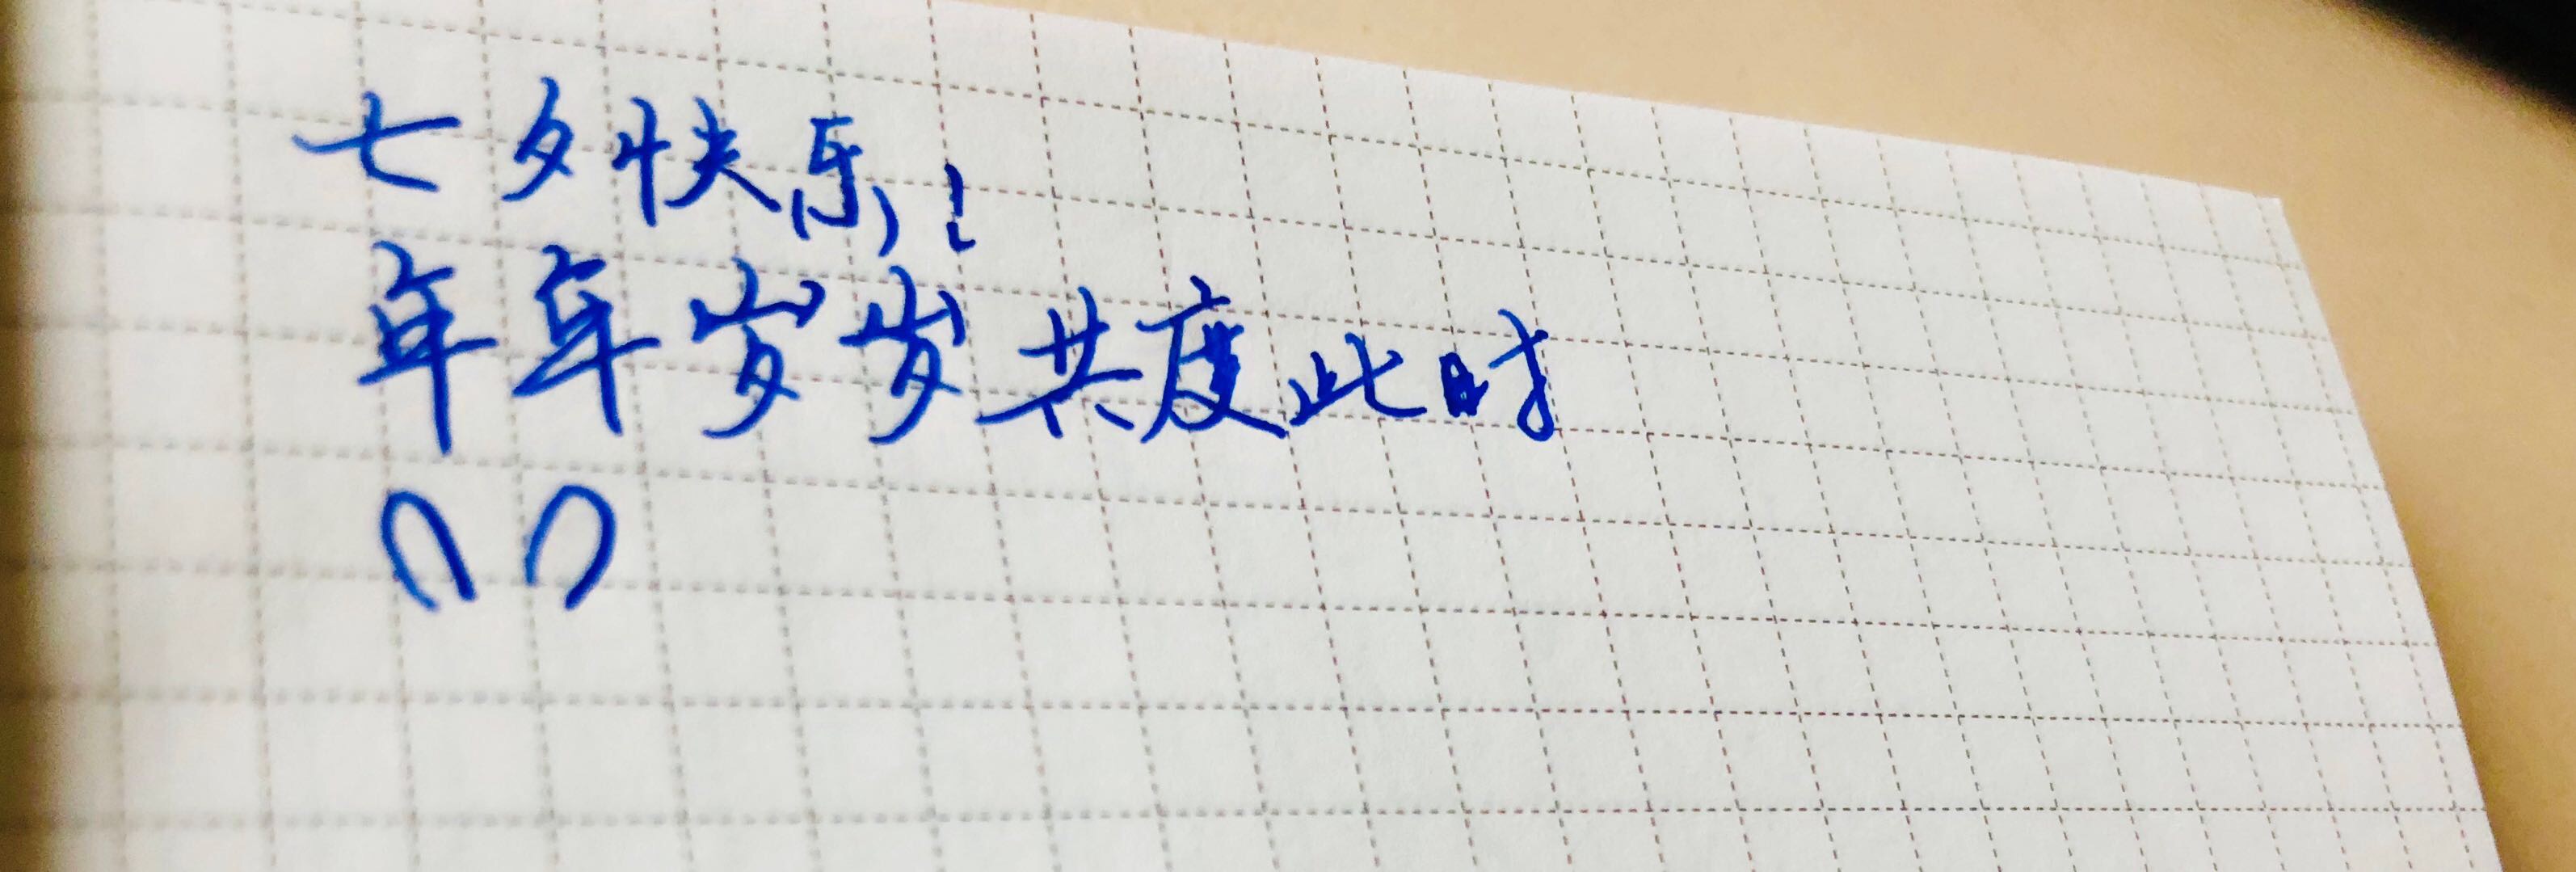 七夕快乐！
年年岁岁共度此时